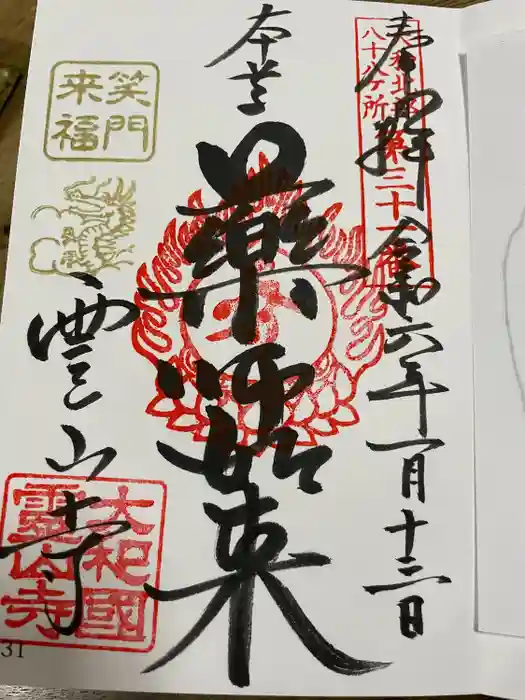 奉拝
令和六年一月十三日
大和北部
八十八ヶ所
第三十一番
本尊
藥師如来
笑門
来福
霊山寺
大和國
靈山寺
31